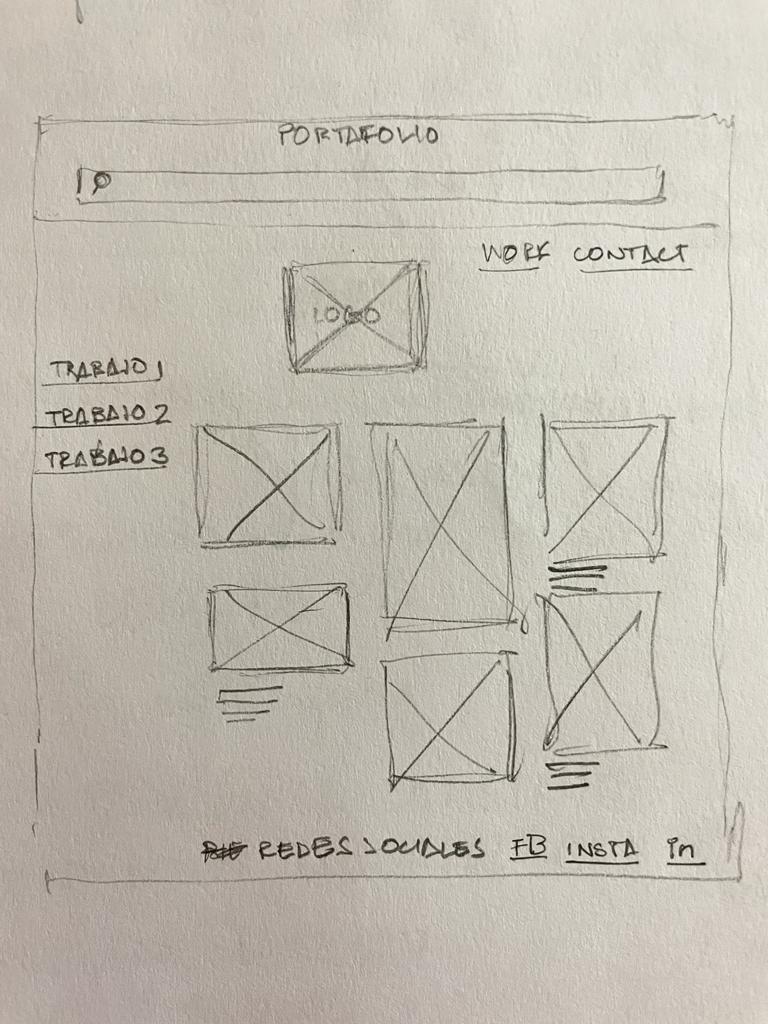 PORTAFOLIO
WORK CONTACT
LOGO
TRABAJO 1
TRABAJO 2
TRABAJO 3
REDES SOCIALES FB INSTA in